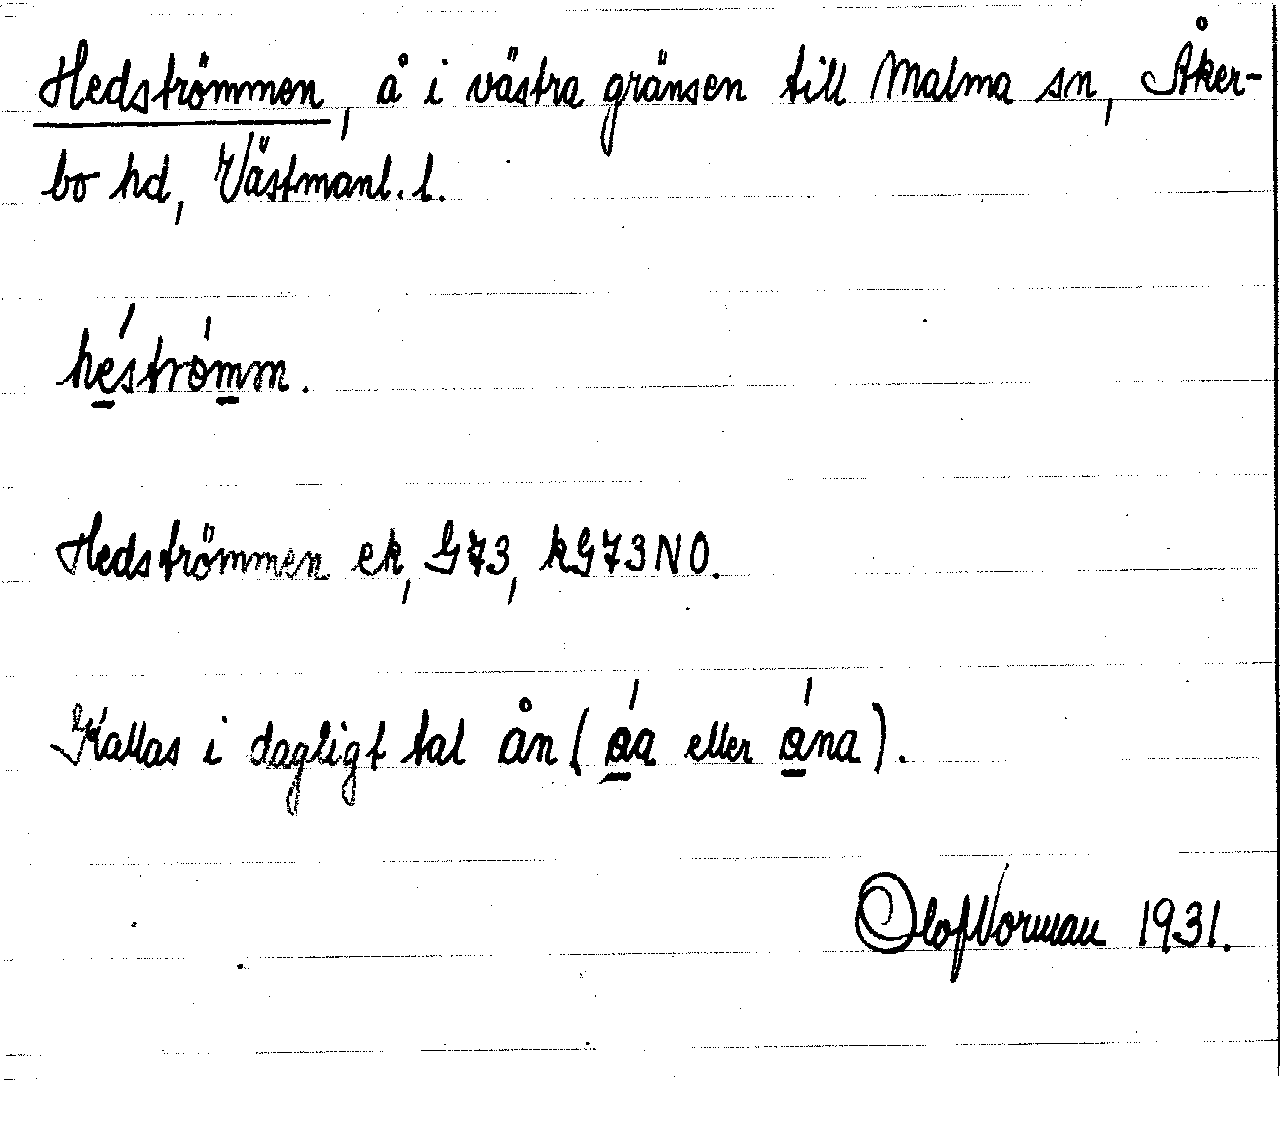 Hedströmmen, å i västra gränsen till Malma sn, Åker-
bo hd, Västmanl. l.
héstrómm.
Hedströmmen ek, G73, kG73NO.
Kallas i dagligt tal ån (óa eller óna).
Olof Norman 1931.